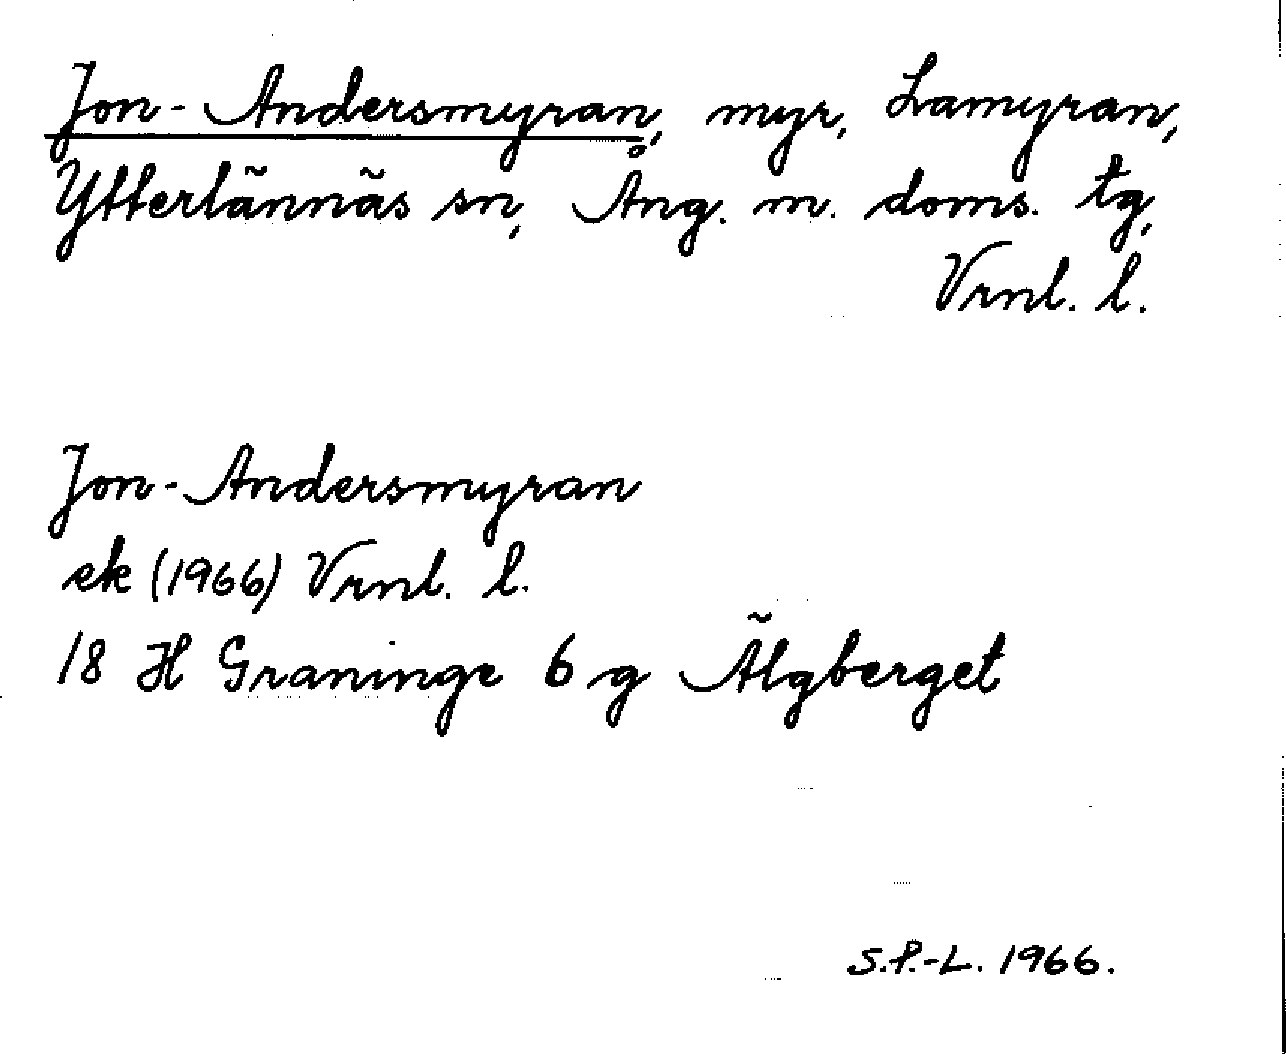 Jon-Andersmyran, myr, Lamyran,
Ytterlännäs sn, Ång. m. doms. tg,
Vrnl. l.
Jon-Andersmyran
ek (1966) Vrnl. l.
18 H Graninge 6 g Älgberget
S.P.-L. 1966.